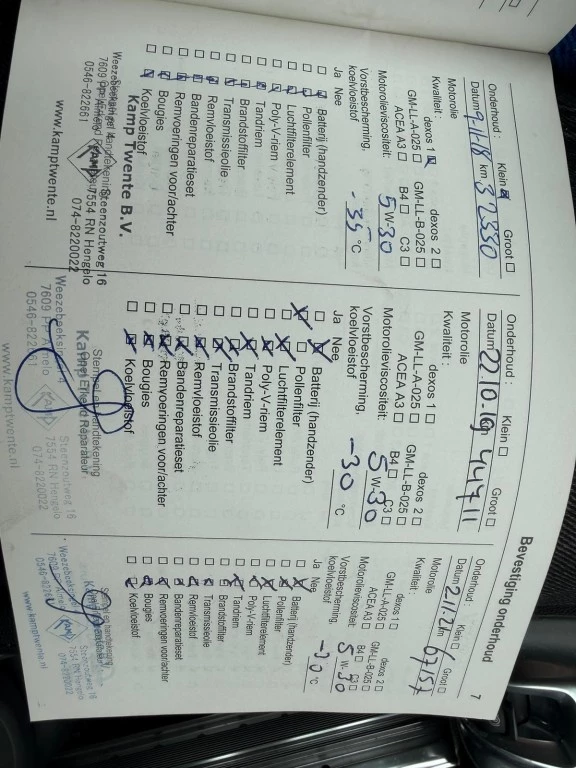 Bevestiging onderhoud
7
Onderhoud :
Klein
Groot
Datum 9-11-18 km 32330
Motorolie
Kwaliteit :
dexos 1
dexos 2
GM-LL-A-025
GM-LL-B-025
ACEA A3
B4
C3
Motorolieviscositeit:
5W-30
Vorstbescherming,
koelvloeistof
-35 °C
Ja Nee
Batterij (handzender)
Pollenfilter
Luchtfilterelement
Poly-V-riem
Tandriem
Brandstoffilter
Transmissieolie
Remvloeistof
Bandenreparatieset
Remvoeringen voor/achter
Bougies
Koelvloeistof
Kamp Twente B.V.
Steenzoutweg 16
7609 PP Almelo
7554 RN Hengelo
0546-822661
074-8220022
www.kamptwente.nl
Onderhoud :
Klein
Groot
Datum 22-10-19 km 44711
Motorolie
Kwaliteit :
dexos 1
dexos 2
GM-LL-A-025
GM-LL-B-025
ACEA A3
B4
C3
Motorolieviscositeit:
5W-30
Vorstbescherming,
koelvloeistof
-30 °C
Ja Nee
Batterij (handzender)
Pollenfilter
Luchtfilterelement
Poly-V-riem
Tandriem
Brandstoffilter
Transmissieolie
Remvloeistof
Bandenreparatieset
Remvoeringen voor/achter
Bougies
Koelvloeistof
Stempel en handtekening
Opel Erkend Reparateur
7609 PP Almelo
Steenzoutweg 16
7554 RN Hengelo
074-8220022
www.kamptwente.nl
Onderhoud :
Klein
Groot
Datum km 67157
Motorolie
Kwaliteit :
dexos 1
dexos 2
GM-LL-A-025
GM-LL-B-025
ACEA A3
B4
C3
Motorolieviscositeit:
5W-30
Vorstbescherming,
koelvloeistof
°C
Ja Nee
Batterij (handzender)
Pollenfilter
Luchtfilterelement
Poly-V-riem
Tandriem
Brandstoffilter
Transmissieolie
Remvloeistof
Bandenreparatieset
Remvoeringen voor/achter
Bougies
Koelvloeistof
Steenzoutweg 16
7554 RN Hengelo
074-8220022
www.kamptwente.nl